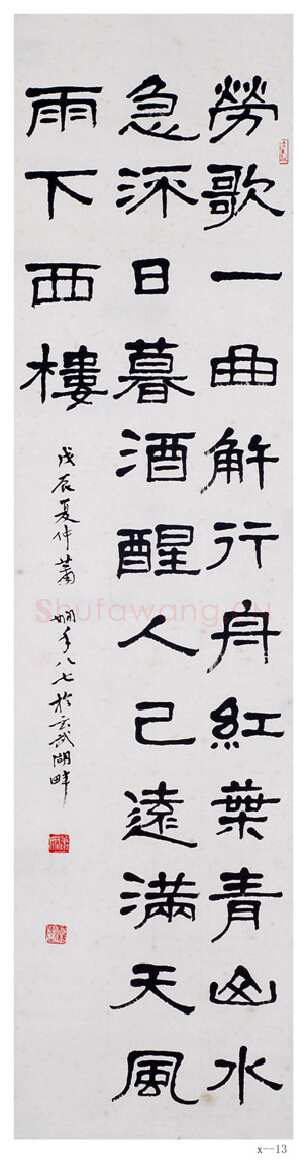 勞歌一曲解行舟紅葉青山水
急流日暮酒醒人已遠滿天風
雨下西樓
戊辰夏仲蕭嫻年八七於玄武湖畔
Shufawang.cn
x--13